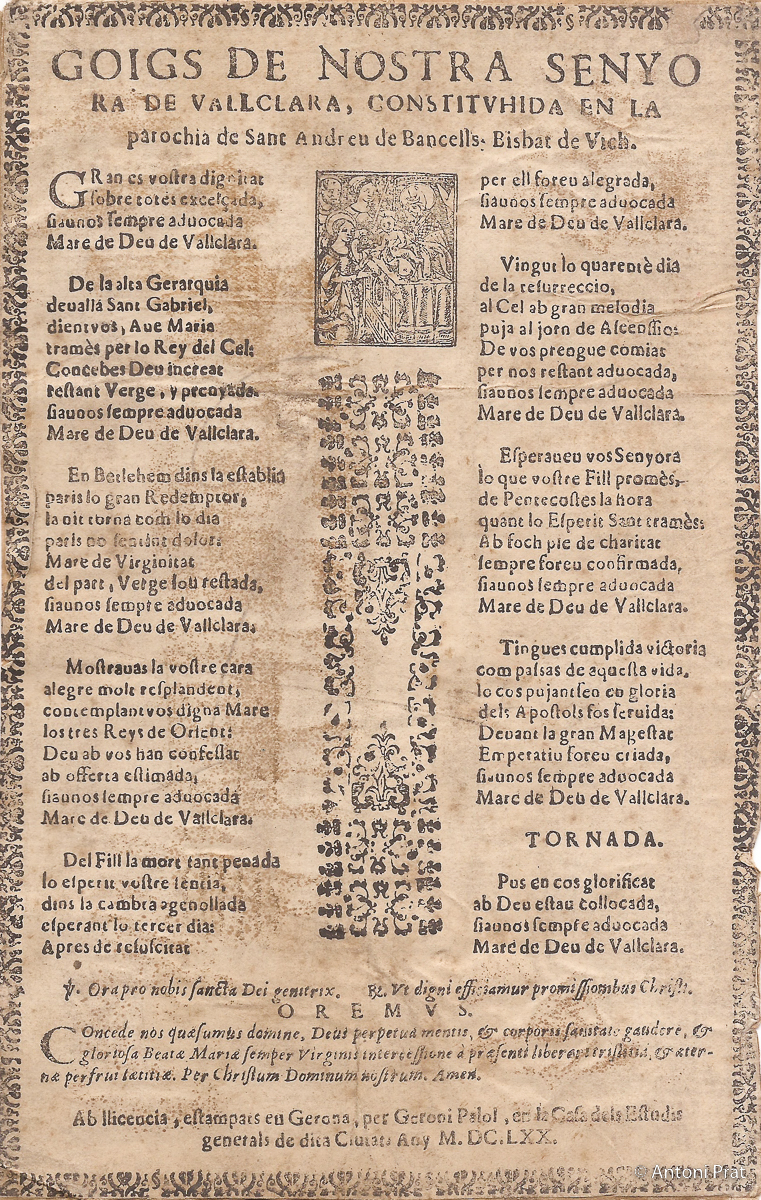 GOIGS DE NOSTRA SENYO
RA DE VALLCLARA, CONSTITVHIDA EN LA
parochia de Sant Andreu de Bancells: Bisbat de Vich.
GRan es voſtra dignitat
ſobre totes excelçada,
ſiaunos ſempre aduocada
Mare de Deu de Vallclara.
De la alta Gerarquia
deuallà Sant Gabriel,
dientvos, Aue Maria
tramès per lo Rey del Cel:
Concebes Deu increat
reſtant Verge, y prenyada.
ſiaunos ſempre aduocada
Mare de Deu de Vallclara.
En Betlehem dins la eſtablia
paris lo gran Redemptor,
la nit torna com lo dia
paris no ſentint dolor.
Mare de Virginitat
del part, Verge ſou reſtada,
ſiaunos ſempre aduocada
Mare de Deu de Vallclara.
Moſtrauas la voſtre cara
alegre molt reſplandent,
contemplantvos digna Mare
los tres Reys de Orient:
Deu ab vos han confeſſat
ab offerta eſtimada,
ſiaunos ſempre aduocada
Mare de Deu de Vallclara.
Del Fill la mort tant penada
lo eſperit voſtre ſentia,
dins la cambra agenollada
eſperant lo tercer dia:
Apres de reſuſcitat
per ell foreu alegrada,
ſiaunos ſempre aduocada
Mare de Deu de Vallclara.
Vingut lo quarentè dia
de la reſurreccio,
al Cel ab gran melodia
puja al jorn de Aſcenſſio:
De vos prengue comiat
per nos reſtant aduocada,
ſiaunos ſempre aduocada
Mare de Deu de Vallclara.
Eſperaueu vos Senyora
lo que voſtre Fill promès,
de Pentecoſtes la hora
quant lo Eſperit Sant tramès:
Ab foch ple de charitat
ſempre foreu confirmada,
ſiaunos ſempre aduocada
Mare de Deu de Vallclara.
Tingues cumplida victoria
com paſsas de aqueſta vida,
lo cos pujantſen en gloria
dels Apoſtols fos ſeruida:
Deuant la gran Mageſtat
Emperatiu foreu criada,
ſiaunos ſempre aduocada
Mare de Deu de Vallclara.
TORNADA.
Pus en cos glorificat
ab Deu eſtau collocada,
ſiaunos ſempre aduocada
Mare de Deu de Vallclara.
℣. Ora pro nobis ſancta Dei genitrix. ℟. Vt digni efficiamur promiſſionibus Chriſti.
OREMVS.
COncede nos quæſumus domine, Deus perpetua mentis, & corporis ſanitate gaudere, &
glorioſa Beatæ Mariæ ſemper Virginis interceſſione à præſenti liberari triſtitia, & æter-
næ perfrui lætitiæ. Per Chriſtum Dominum noſtrum. Amen.
Ab llicencia, eſtampats en Gerona, per Geroni Palol, en la Caſa dels Eſtudis
generals de dita Ciutat: Any M. DC. LXX.
© Antoni Prat